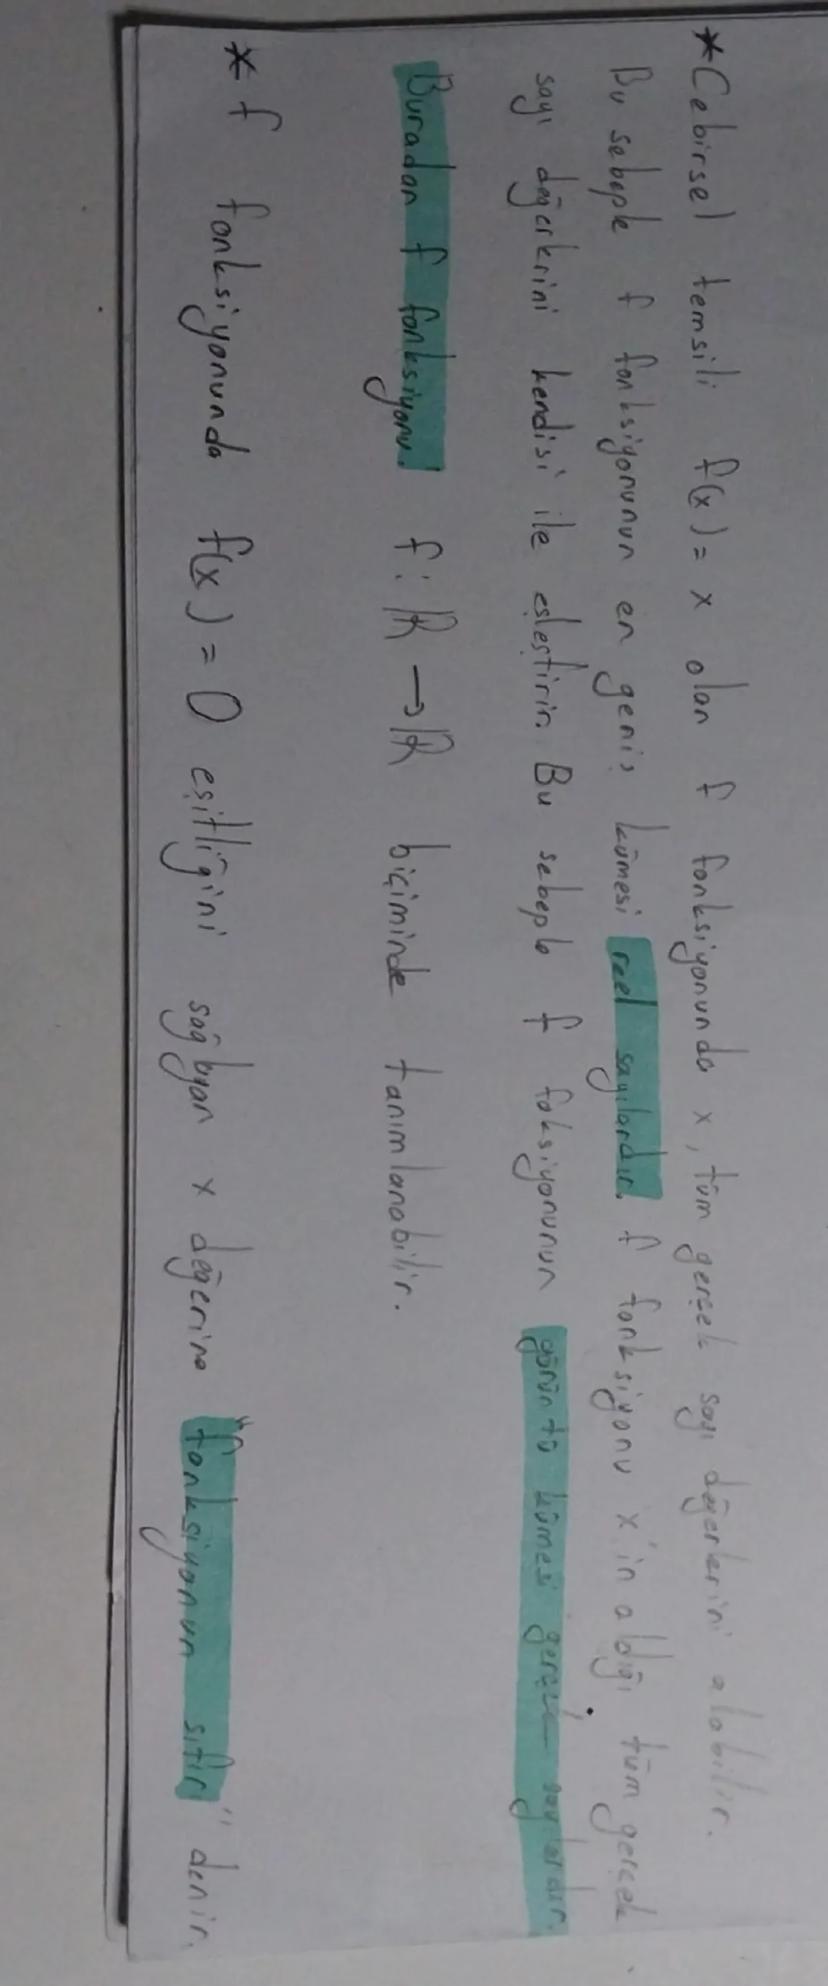 *Cebirsel temsili f(x) = x olan f fonksiyonunda x, tüm gerçek sayı değerlerini alabilir.
Bu sebeple f fonksiyonunun en geniş kümesi reel sayılardır. f fonksiyonu x'in aldığı tüm gerçek
sayı değerlerini kendisi ile eşleştirir. Bu sebeple f foksiyonunun görüntü kümesi gerçek sayılardır.
Buradan f fonksiyonu! f: ℝ → ℝ biçiminde tanımlanabilir.
* f fonksiyonunda f(x) = 0 eşitliğini sağlayan x değerine "fonksiyonun sıfırı" denir.